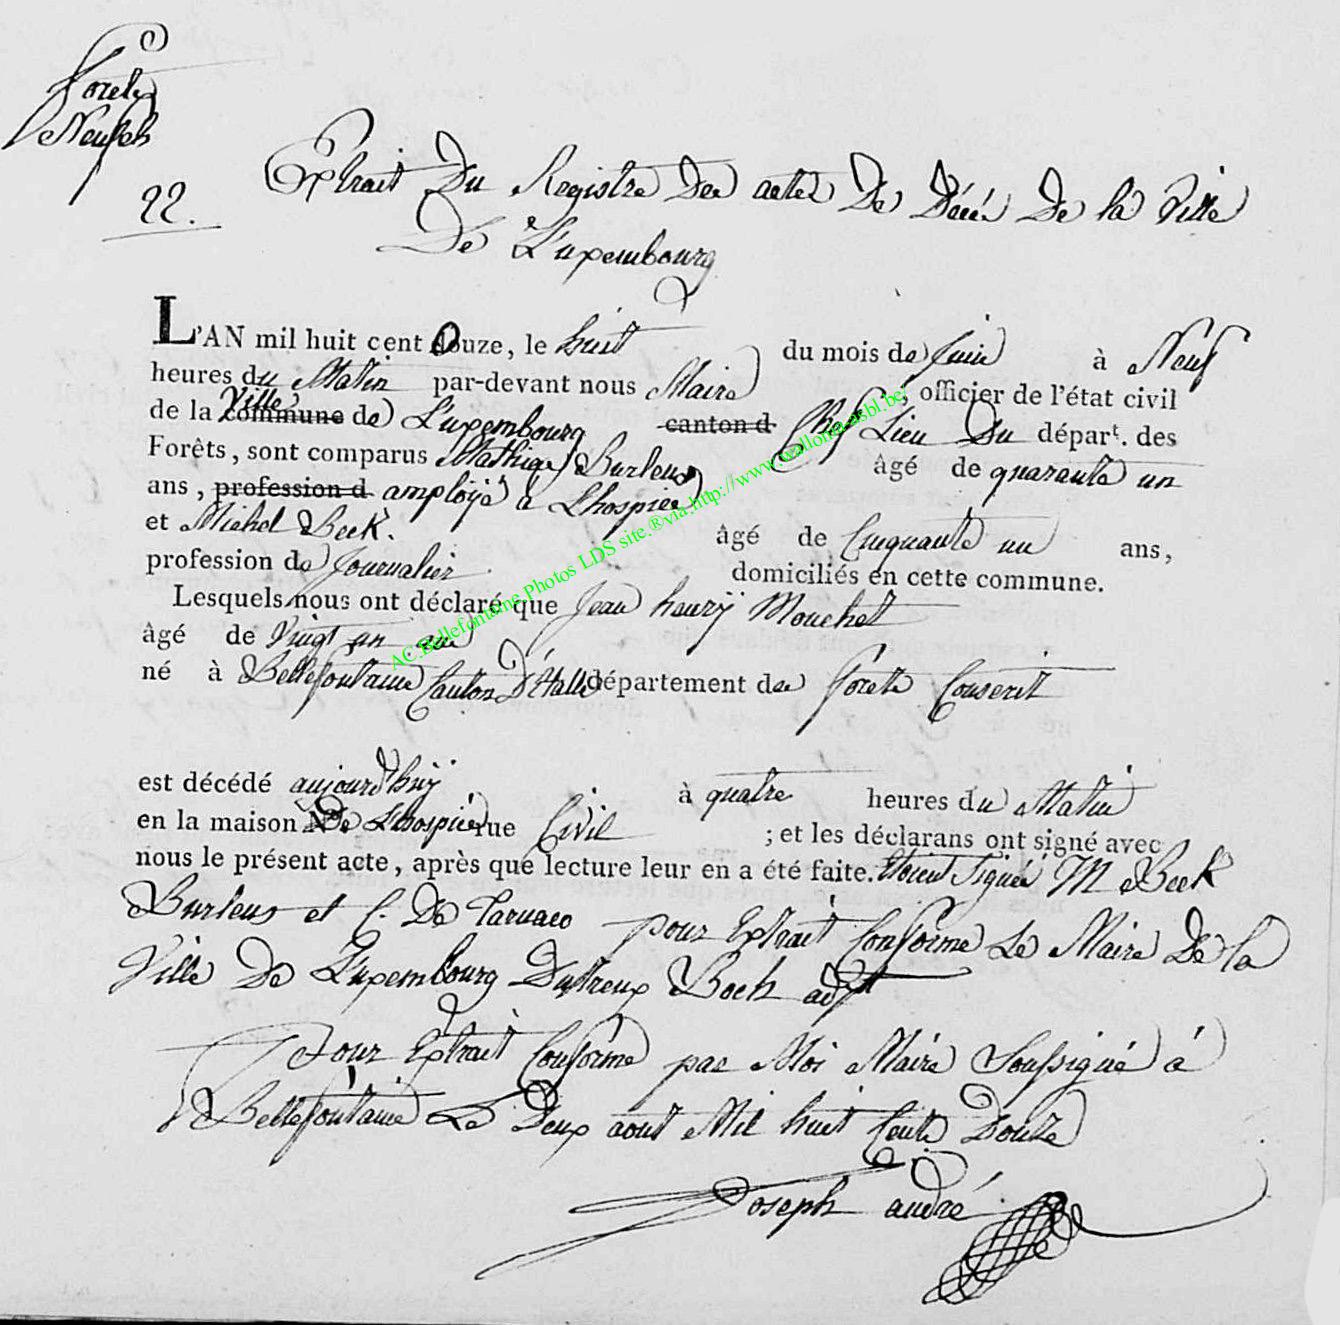 Forets
Neufch
22.
Extrait Du Registre Des actes De Décés De la Ville
De Luxembourg
L'AN mil huit cent douze, le huit du mois de Juin à Neuf
heures du Matin par-devant nous Maire, officier de l'état civil
de la commune Ville de Luxembourg canton d Chef Lieu Du départ. des
Forêts, sont comparus Mathias Burleus âgé de quarante un
ans, profession d amployé a Lhospice
et Michel Beck. âgé de Cinquante un ans,
profession de Journalier domiciliés en cette commune.
Lesquels nous ont déclaré que Jean henry Mouchet
âgé de Vingt un ans
né à Bellefontaine Canton D'Etalle département des Forets Conscrit
est décédé aujourd'huÿ à quatre heures du Matin
en la maison De Lhospice rue Civil ; et les déclarans ont signé avec
nous le présent acte, après que lecture leur en a été faite. Etoient Signés M Beck
Burleus et C. De Tarnaco pour Extrait Conforme Le Maire De la
Ville De Luxembourg Dutreux Boch adjt
Pour Extrait Conforme par Moi Maire Soussigné à
Bellefontaine Le Deux aout Mil huit Cents Douze
Joseph andré
AC.Bellefontaine.Photos LDS site.®via.http://www.wallonia-asbl.be/